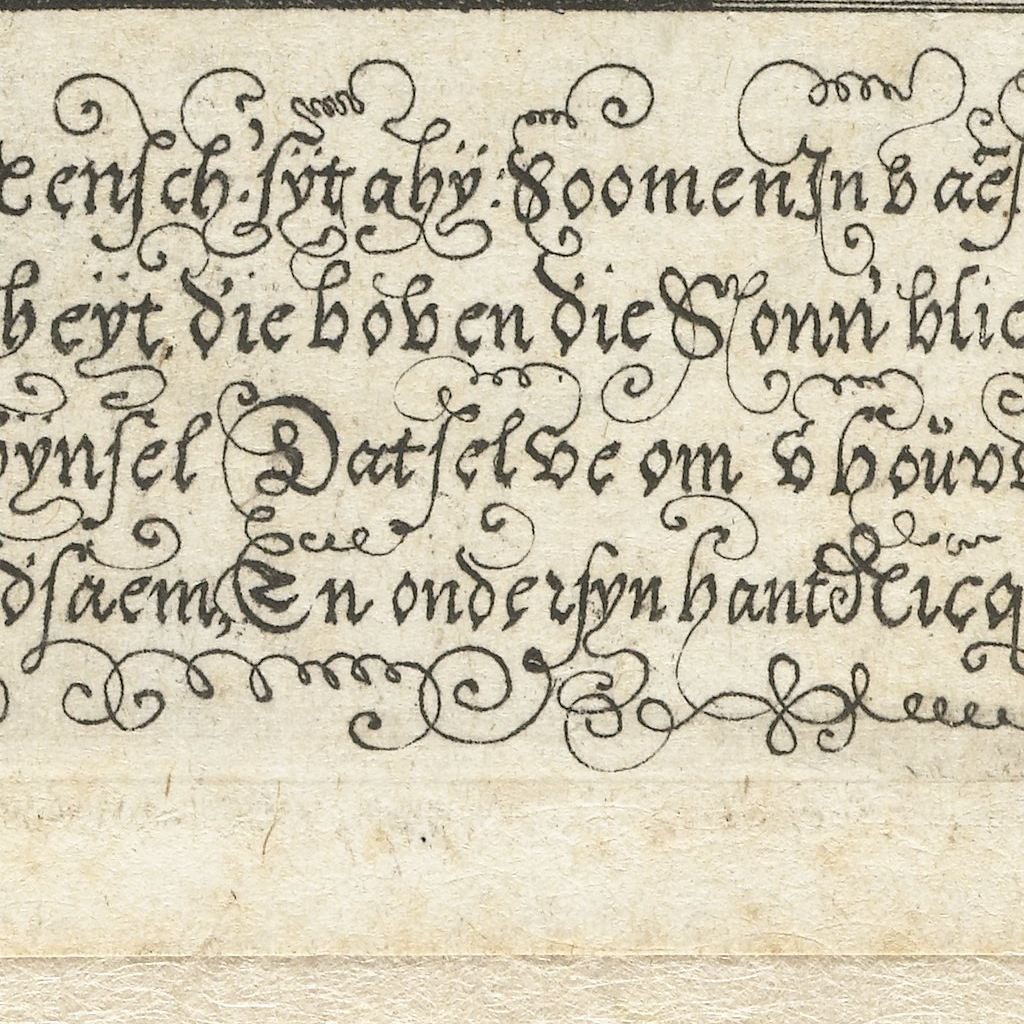 Mensch. sÿt ghÿ: Soomen In v aēs
heÿt, die boven die Sonn' blie
ynsel Datselve om v houw
dsaem, En ondersyn hant Ricq